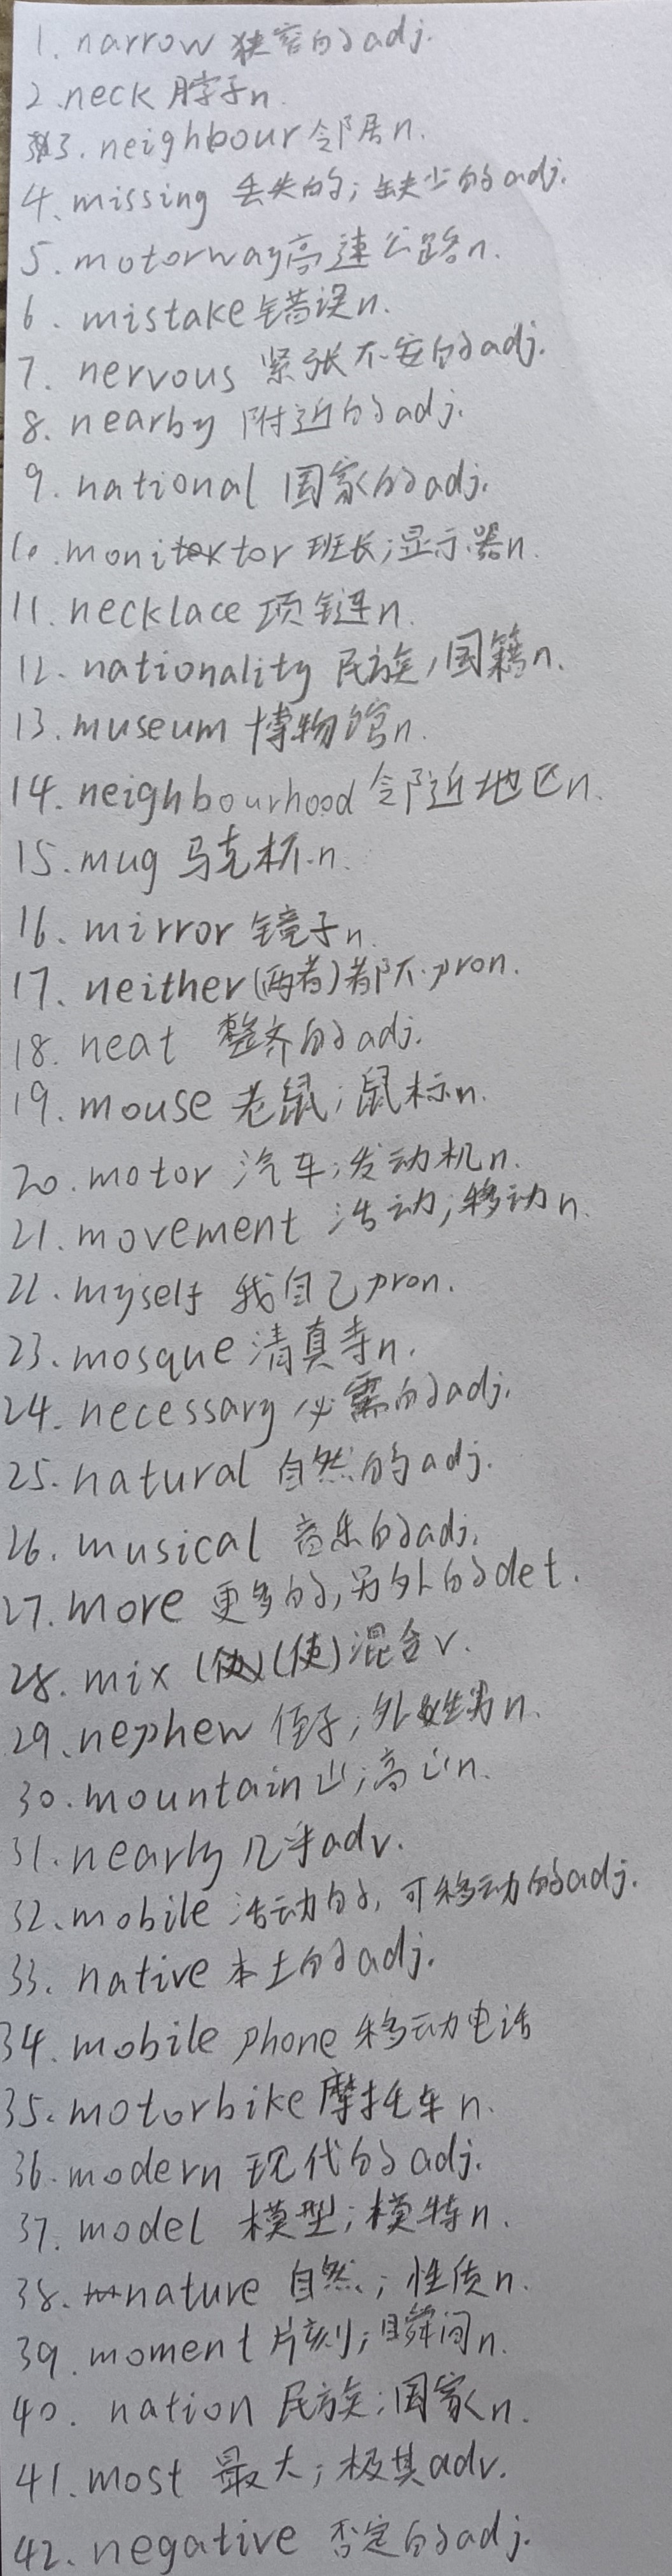 1. narrow 狭窄的 adj.
2. neck 脖子 n.
3. neighbour 邻居 n.
4. missing 丢失的; 缺少的 adj.
5. motorway 高速公路 n.
6. mistake 错误 n.
7. nervous 紧张不安的 adj.
8. nearby 附近的 adj.
9. national 国家的 adj.
10. monitor 班长; 显示器 n.
11. necklace 项链 n.
12. nationality 民族, 国籍 n.
13. museum 博物馆 n.
14. neighbourhood 邻近地区 n.
15. mug 马克杯 n.
16. mirror 镜子 n.
17. neither (两者)都不 pron.
18. neat 整齐的 adj.
19. mouse 老鼠; 鼠标 n.
20. motor 汽车; 发动机 n.
21. movement 活动; 移动 n.
22. myself 我自己 pron.
23. mosque 清真寺 n.
24. necessary 必需的 adj.
25. natural 自然的 adj.
26. musical 音乐的 adj.
27. more 更多的, 另外的 det.
28. mix (使)混合 v.
29. nephew 侄子; 外甥 n.
30. mountain 山; 高山 n.
31. nearly 几乎 adv.
32. mobile 活动的, 可移动的 adj.
33. native 本土的 adj.
34. mobile phone 移动电话
35. motorbike 摩托车 n.
36. modern 现代的 adj.
37. model 模型; 模特 n.
38. nature 自然; 性质 n.
39. moment 片刻; 瞬间 n.
40. nation 民族; 国家 n.
41. most 最大; 极其 adv.
42. negative 否定的 adj.